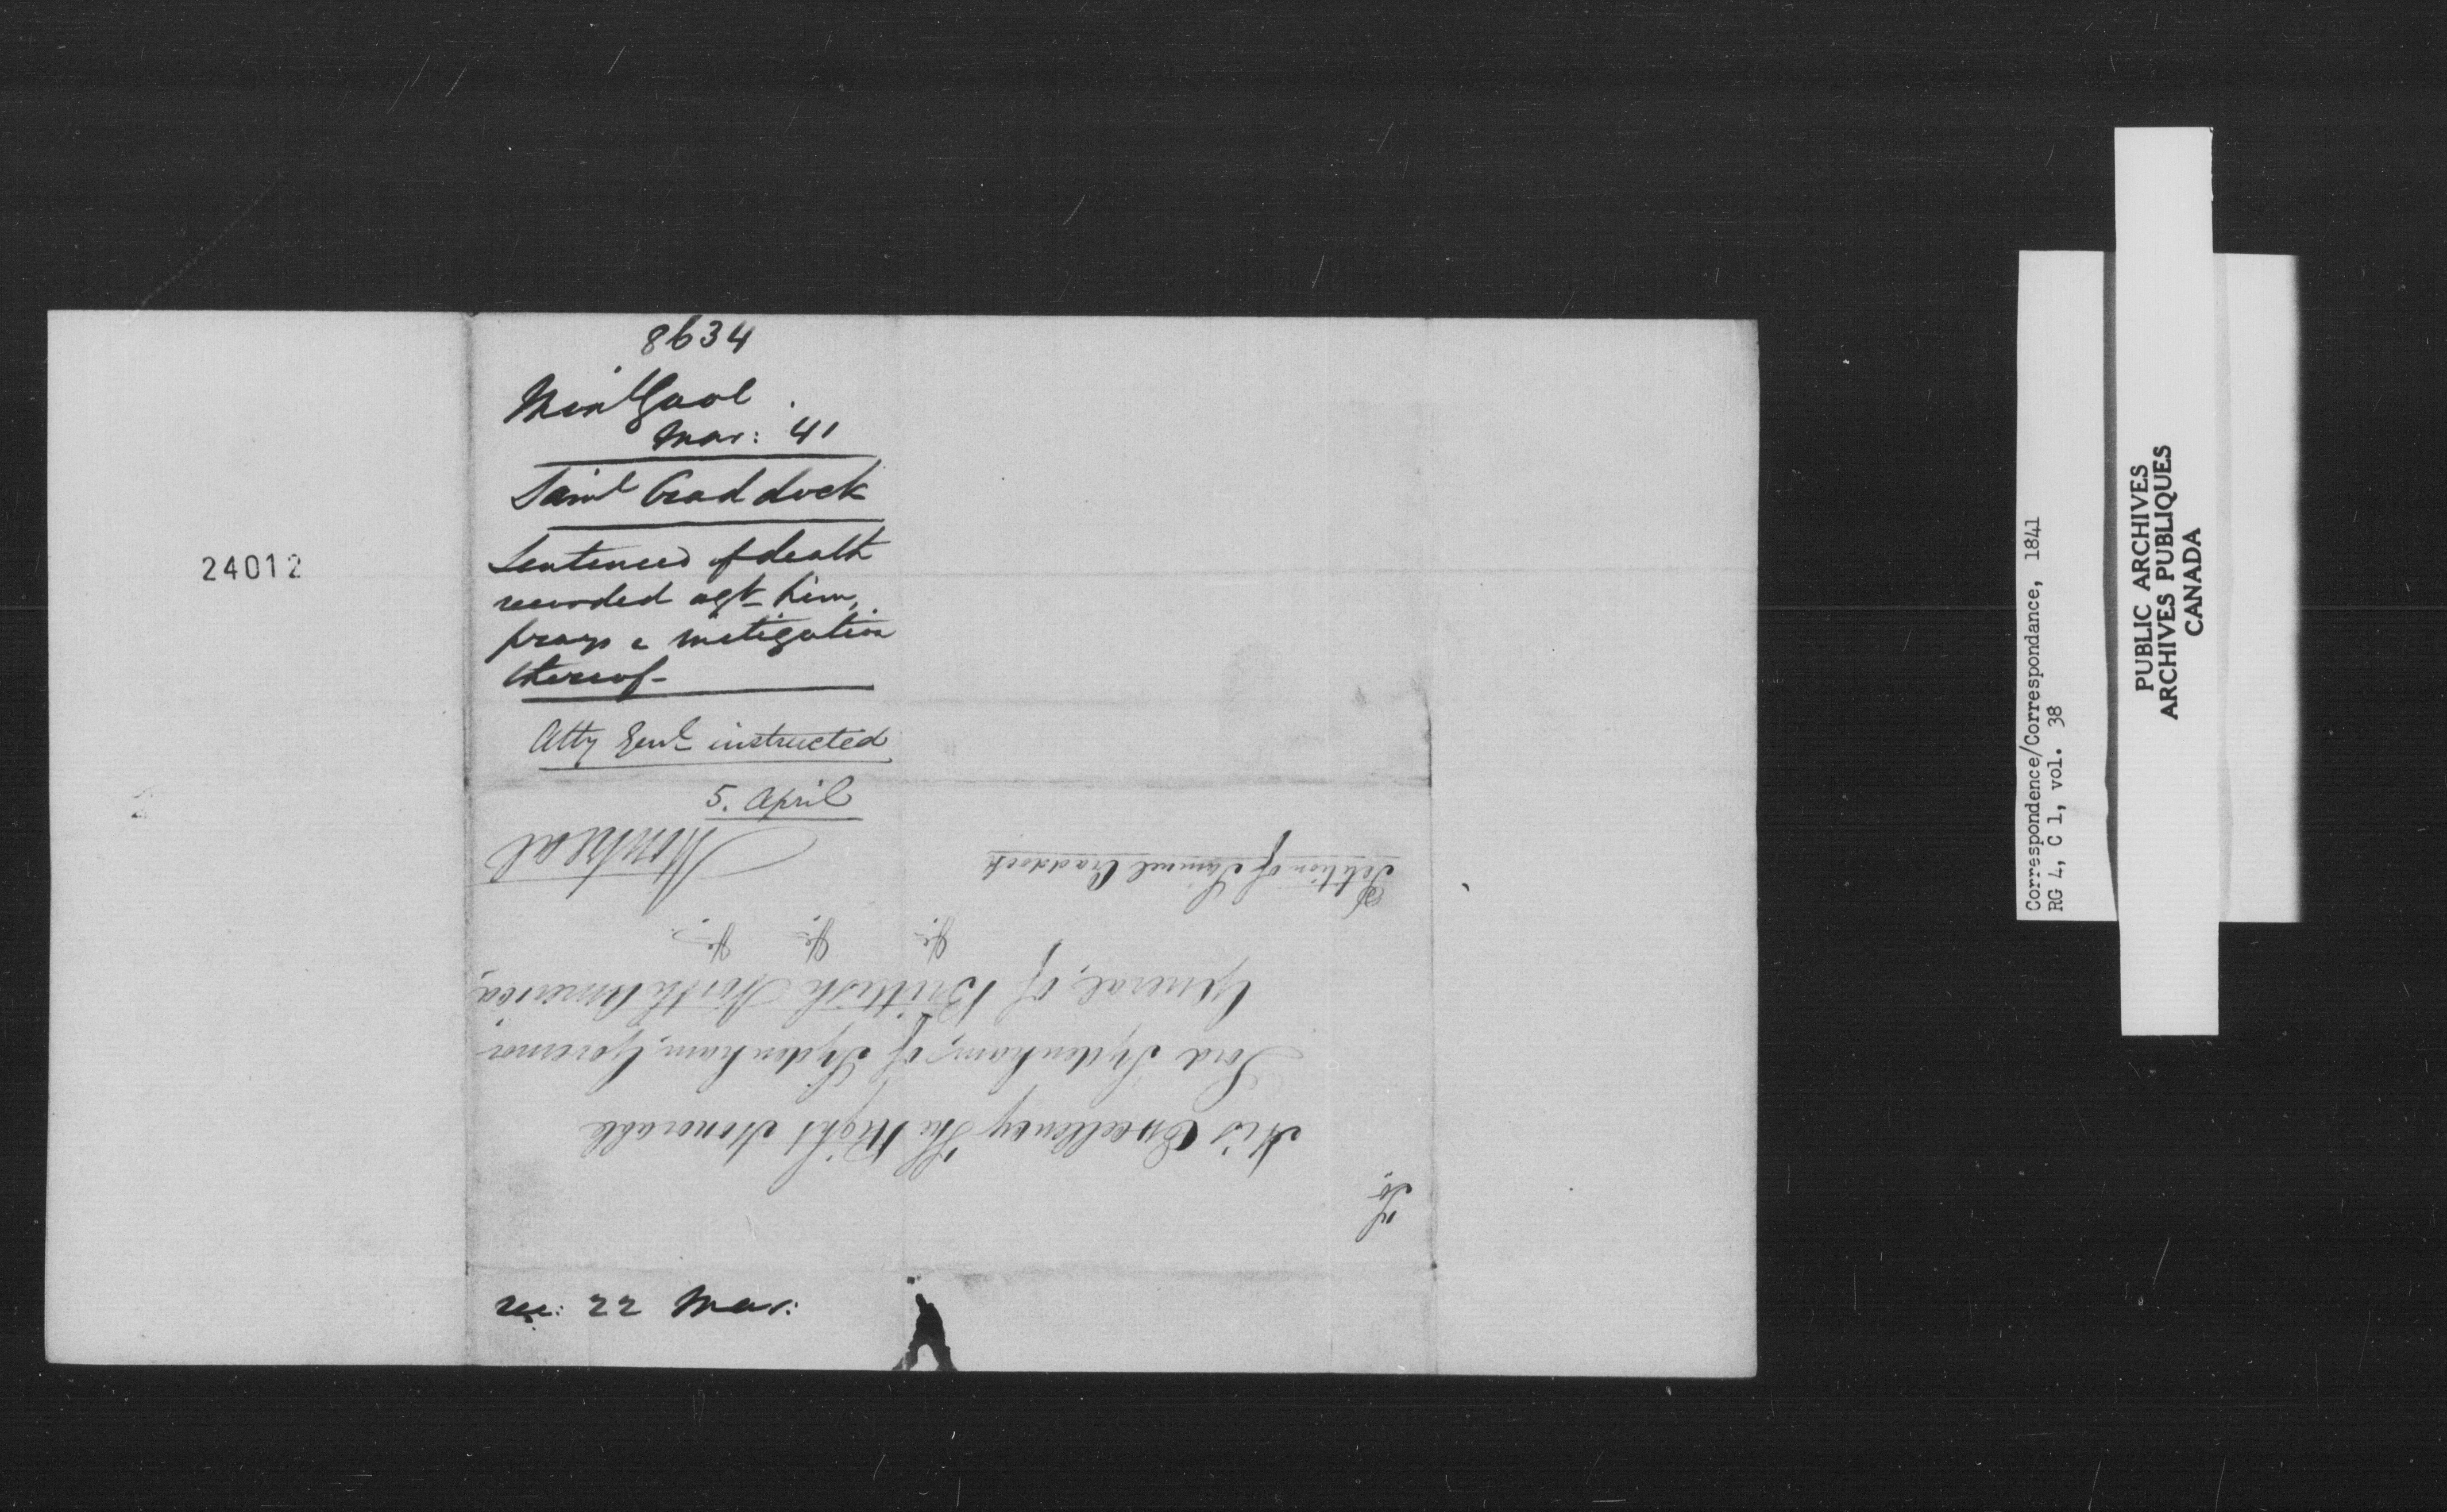 8634
Montl Gaol
Mar: 41
Saml Craddock
Sentence of death
recorded agt him,
prays a mitigation
thereof-
Atty Genl instructed
5. April
24012
rec: 22 Mar:
To
His Excellency The Right Honorable
Lord Sydenham, of Sydenham, Governor
General, of Brittish North America,
&c. &c. &c.
Montreal
Petition of Samuel Craddock
Correspondence/Correspondance, 1841
RG 4, C 1, vol. 38
PUBLIC ARCHIVES
ARCHIVES PUBLIQUES
CANADA